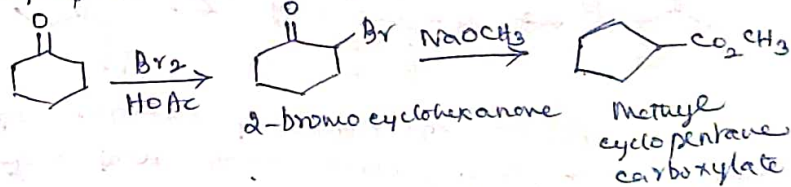 O
O
Br2
HOAc
Br
NaOCH3
CO2CH3
2-bromo cyclohexanone
Methyl
cyclopentane
carboxylate